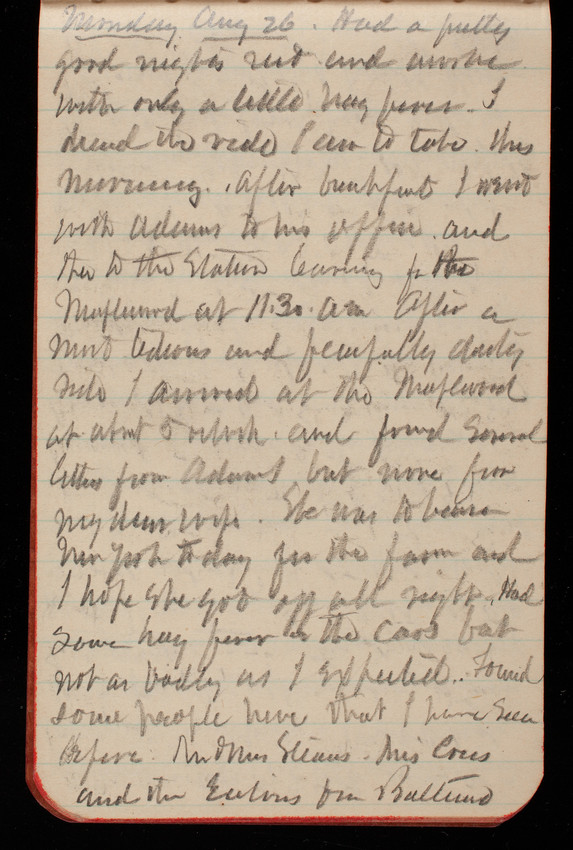 Monday Aug 26. Had a pretty
good nights rest and awoke
with only a little hay fever. I
dread the ride I am to take this
morning. After breakfast I went
with Adams to his office and
then to the Station leaving for the
Maplewood at 11.30 am After a
most tedious and fearfully dusty
ride I arrived at the Maplewood
at about 5 oclock and found several
letters from Adams but none from
my dear wife. She was to leave
New York today for the farm and
I hope she got off all right. Had
some hay fever in the cars but
not as badly as I expected. Found
some people here that I have seen
before Mr & Mrs Stearns. Miss
and the from